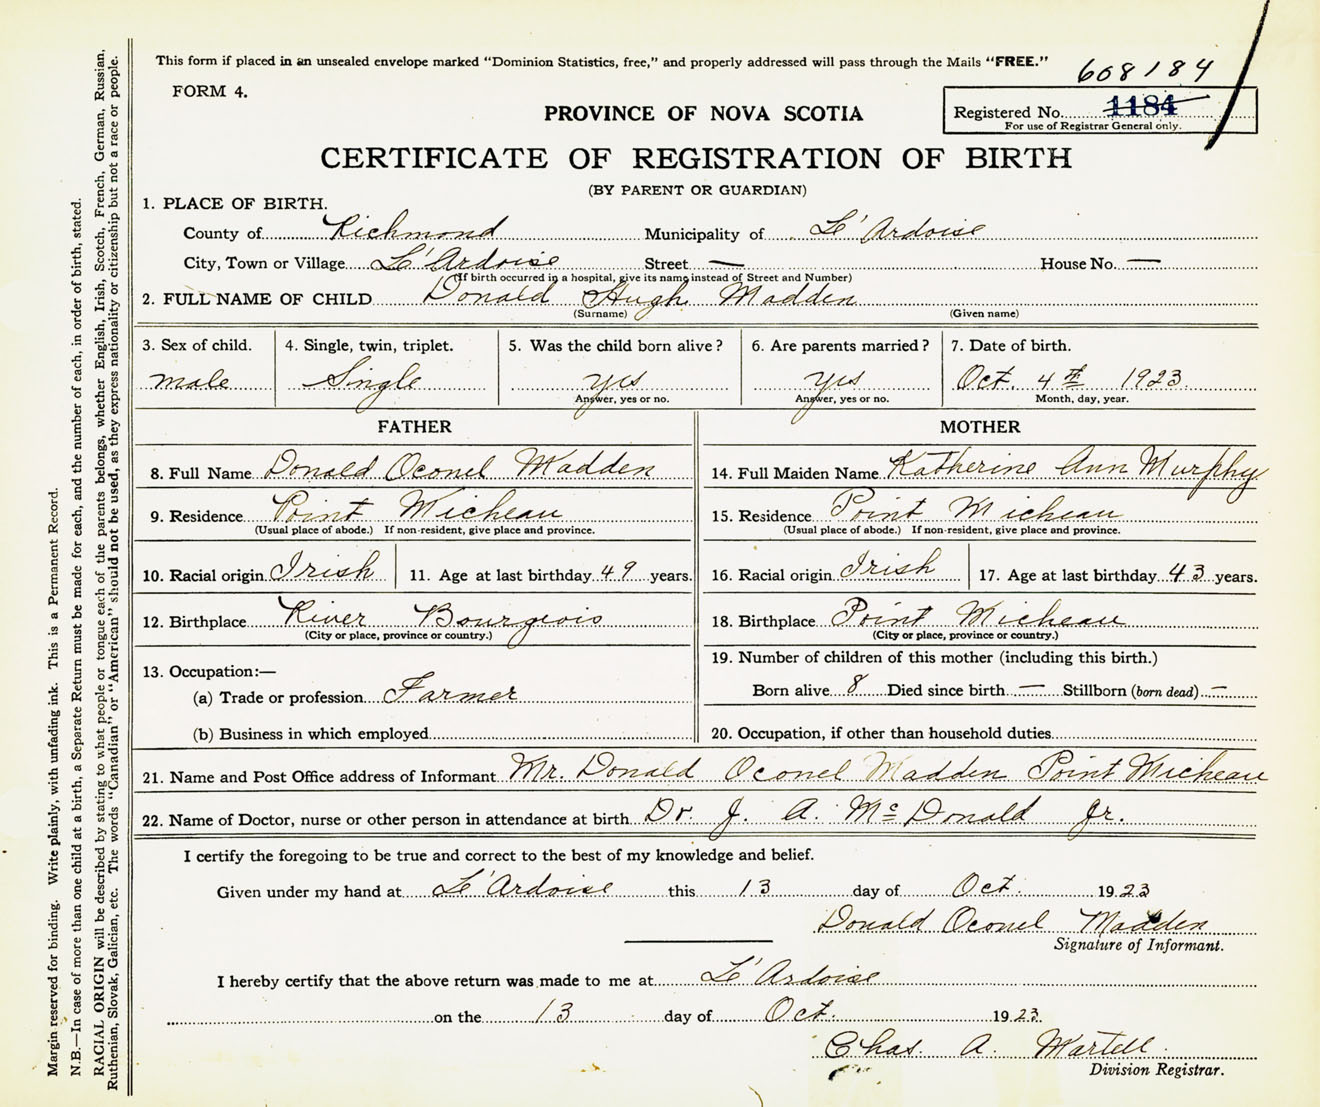 This form if placed in an unsealed envelope marked "Dominion Statistics, free," and properly addressed will pass through the Mails "FREE."
608184
FORM 4.
PROVINCE OF NOVA SCOTIA
Registered No. 1184
For use of Registrar General only.
CERTIFICATE OF REGISTRATION OF BIRTH
(BY PARENT OR GUARDIAN)
1. PLACE OF BIRTH.
County of Richmond Municipality of L'Ardoise
City, Town or Village L'Ardoise Street — House No. —
(If birth occurred in a hospital, give its name instead of Street and Number)
2. FULL NAME OF CHILD Donald Hugh Madden
(Surname) (Given name)
3. Sex of child. 4. Single, twin, triplet. 5. Was the child born alive? 6. Are parents married? 7. Date of birth.
male Single yes yes Oct. 4th 1923
Answer, yes or no. Answer, yes or no. Month, day, year.
FATHER MOTHER
8. Full Name Donald Oconel Madden 14. Full Maiden Name Katherine Ann Murphy
9. Residence Point Micheau 15. Residence Point Micheau
(Usual place of abode.) If non-resident, give place and province. (Usual place of abode.) If non-resident, give place and province.
10. Racial origin Irish 11. Age at last birthday 49 years. 16. Racial origin Irish 17. Age at last birthday 43 years.
12. Birthplace River Bourgeois 18. Birthplace Point Micheau
(City or place, province or country.) (City or place, province or country.)
13. Occupation:— 19. Number of children of this mother (including this birth.)
(a) Trade or profession Farmer Born alive 8 Died since birth — Stillborn (born dead) —
(b) Business in which employed 20. Occupation, if other than household duties
21. Name and Post Office address of Informant Mr. Donald Oconel Madden Point Micheau
22. Name of Doctor, nurse or other person in attendance at birth Dr. J. A. McDonald Jr.
I certify the foregoing to be true and correct to the best of my knowledge and belief.
Given under my hand at L'Ardoise this 13 day of Oct. 1923
Donald Oconel Madden
Signature of Informant.
I hereby certify that the above return was made to me at L'Ardoise
on the 13 day of Oct. 1923.
Chas. A. Martell.
Division Registrar.
Margin reserved for binding. Write plainly, with unfading ink. This is a Permanent Record.
N.B.—In case of more than one child at a birth, a Separate Return must be made for each, and the number of each, in order of birth, stated.
RACIAL ORIGIN will be described by stating to what people or tongue each of the parents belongs, whether English, Irish, Scotch, French, German, Russian,
Ruthenian, Slovak, Galician, etc. The words "Canadian" or "American" should not be used, as they express nationality or citizenship but not a race or people.